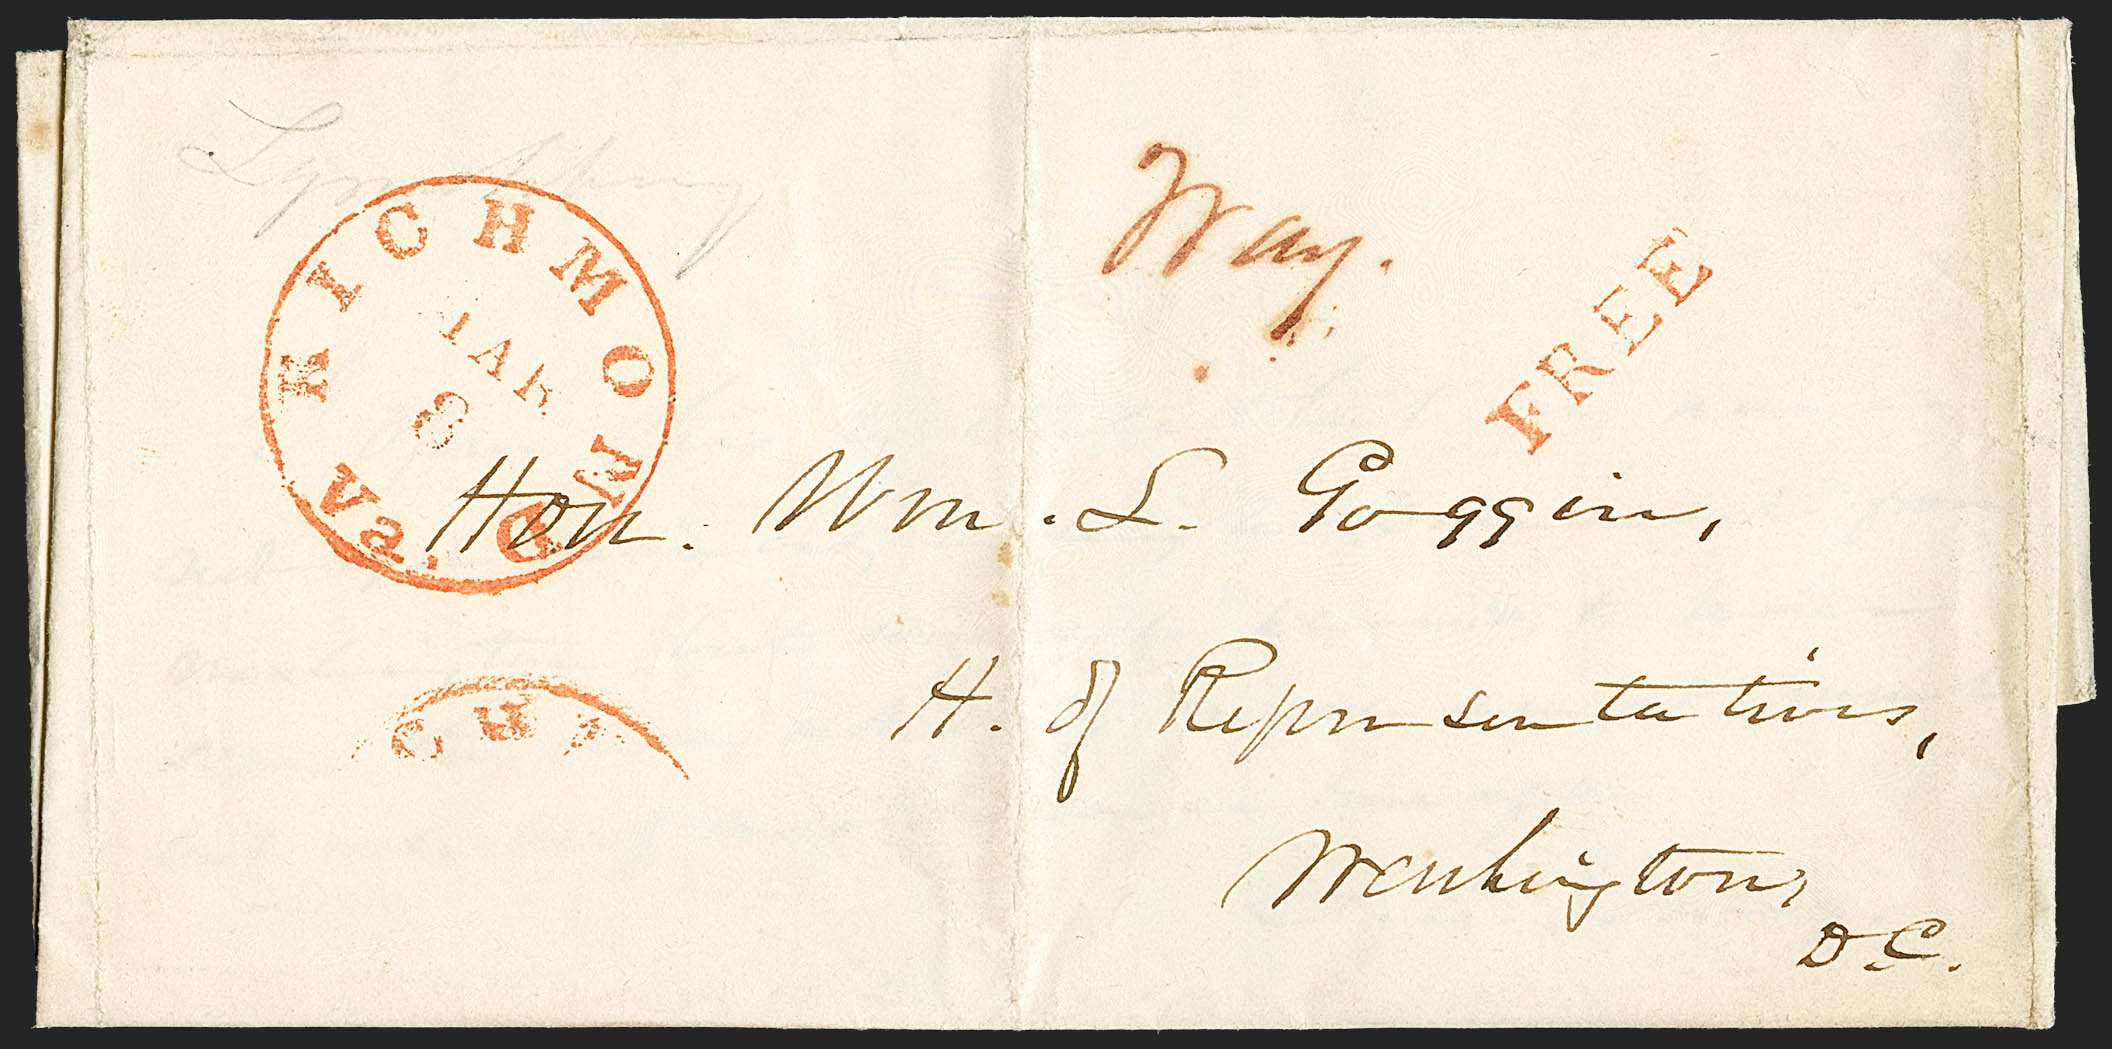 Lynchburg
RICHMOND
Va.
MAR
8
Way.
FREE
Hon. Wm. L. Goggin,
CHM
H. of Representatives,
Washington,
D.C.